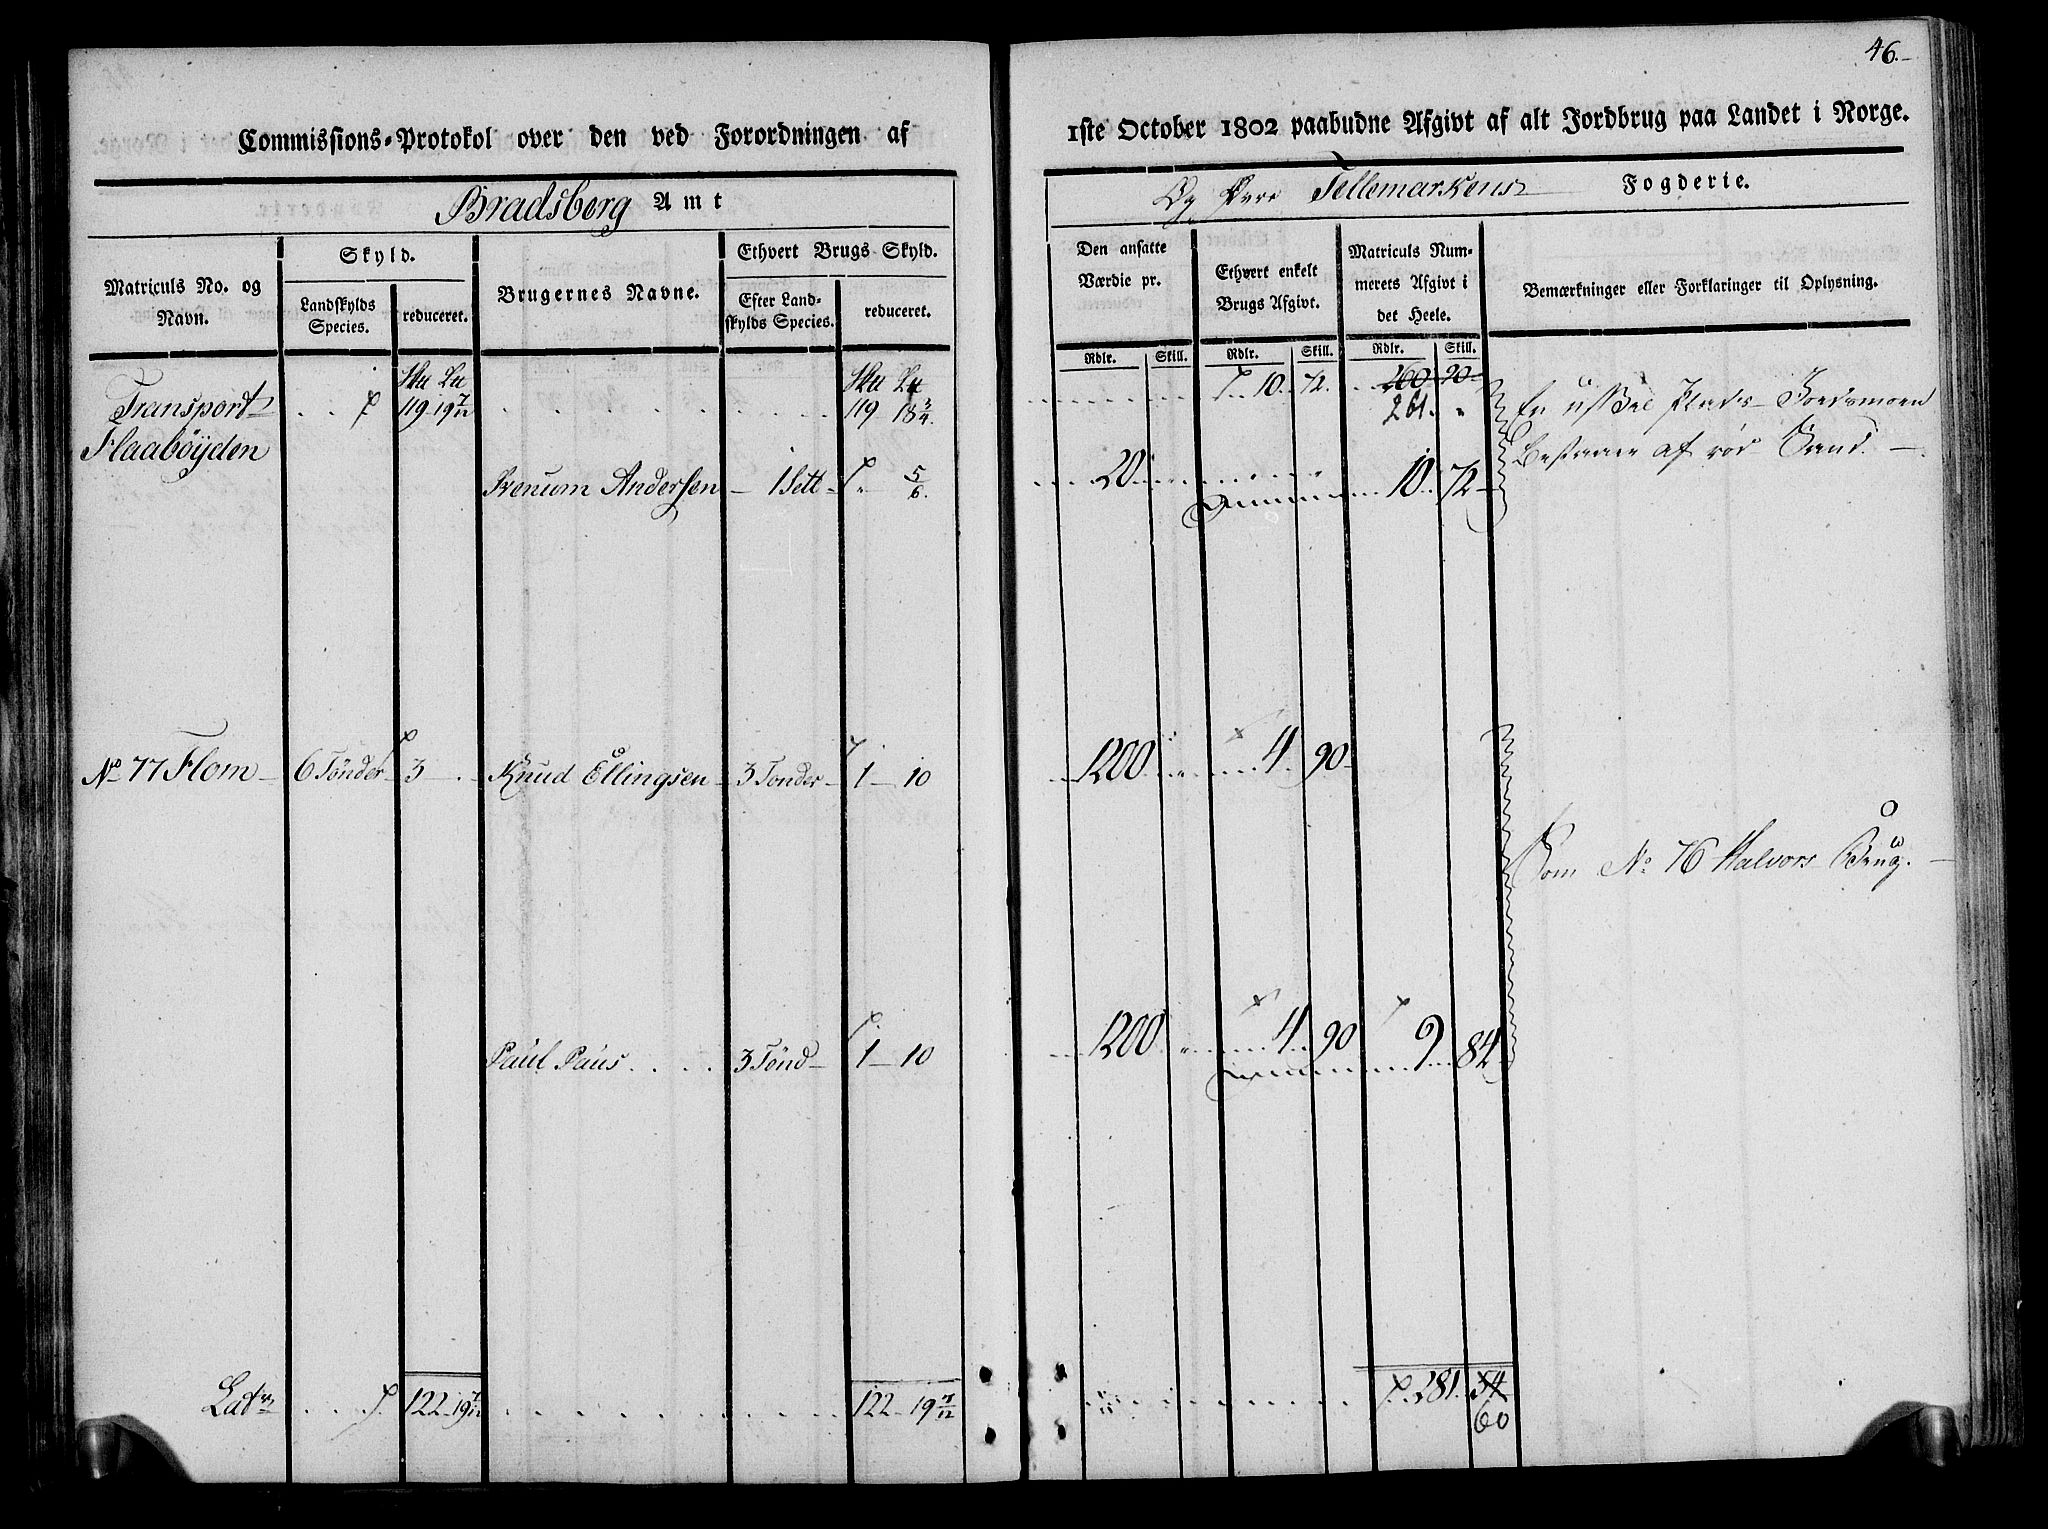 46.
Commissions-Protokol over den ved Forordningen af
1ste October 1802 paabudne Afgivt af alt Jordbrug paa Landet i Norge.
Bradsberg Amt
Og Øvre Tellemarkens Fogderie.
Matriculs No. og Navn.
Skyld.
Landskylds Species.
reduceret.
Brugernes Navne.
Ethvert Brugs Skyld.
Efter Landskylds Species.
reduceret.
Den ansatte Værdie pr.
Rdlr. Skill.
Ethvert enkelt Brugs Afgivt.
Rdlr. Skill.
Matriculs Nummerets Afgivt i det Heele.
Rdlr. Skill.
Bemærkninger eller Forklaringer til Oplysning.
Transport 119 19 7/12 119 18 3/4 10 72 260 90
261 "
Flaabøyden
Svenum Andersen 1 Sett " 5/6 20 10 72
Plads
Bestaaer af Sand
No 77 Flom 6 Tønder 3 Knud Ellingsen 3 Tonder 1 10 1200 4 90
Som No 76 Halvors Brug.
Paul Paus 3 Tønd 1 10 1200 4 90 9 84
Lat 122 19 7/12 122 19 7/12 281 54
60